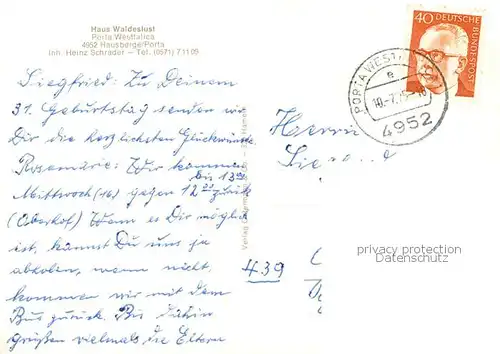 Haus Waldeslust
Porta Westfalica
4952 Hausberge/Porta
Inh. Heinz Schrader – Tel. (0571) 71105
Siegfried: Zu Deinem
31. Geburtstag senden wir
Dir die herzlichsten Glückwünsche
Rosemarie: Wir kommen
bis 13
Mittwoch (16) gegen 12 zurück
(Oberhof) Wenn es Dir möglich
ist, kannst Du uns ja
abholen, wenn nicht,
kommen wir mit dem
Bus zurück. Bis dahin
grüßen vielmals die Eltern
Verlag
40 DEUTSCHE
BUNDESPOST
PORTA WEST
e
10.-7.75
4952
Herrn
439
privacy protection
Datenschutz